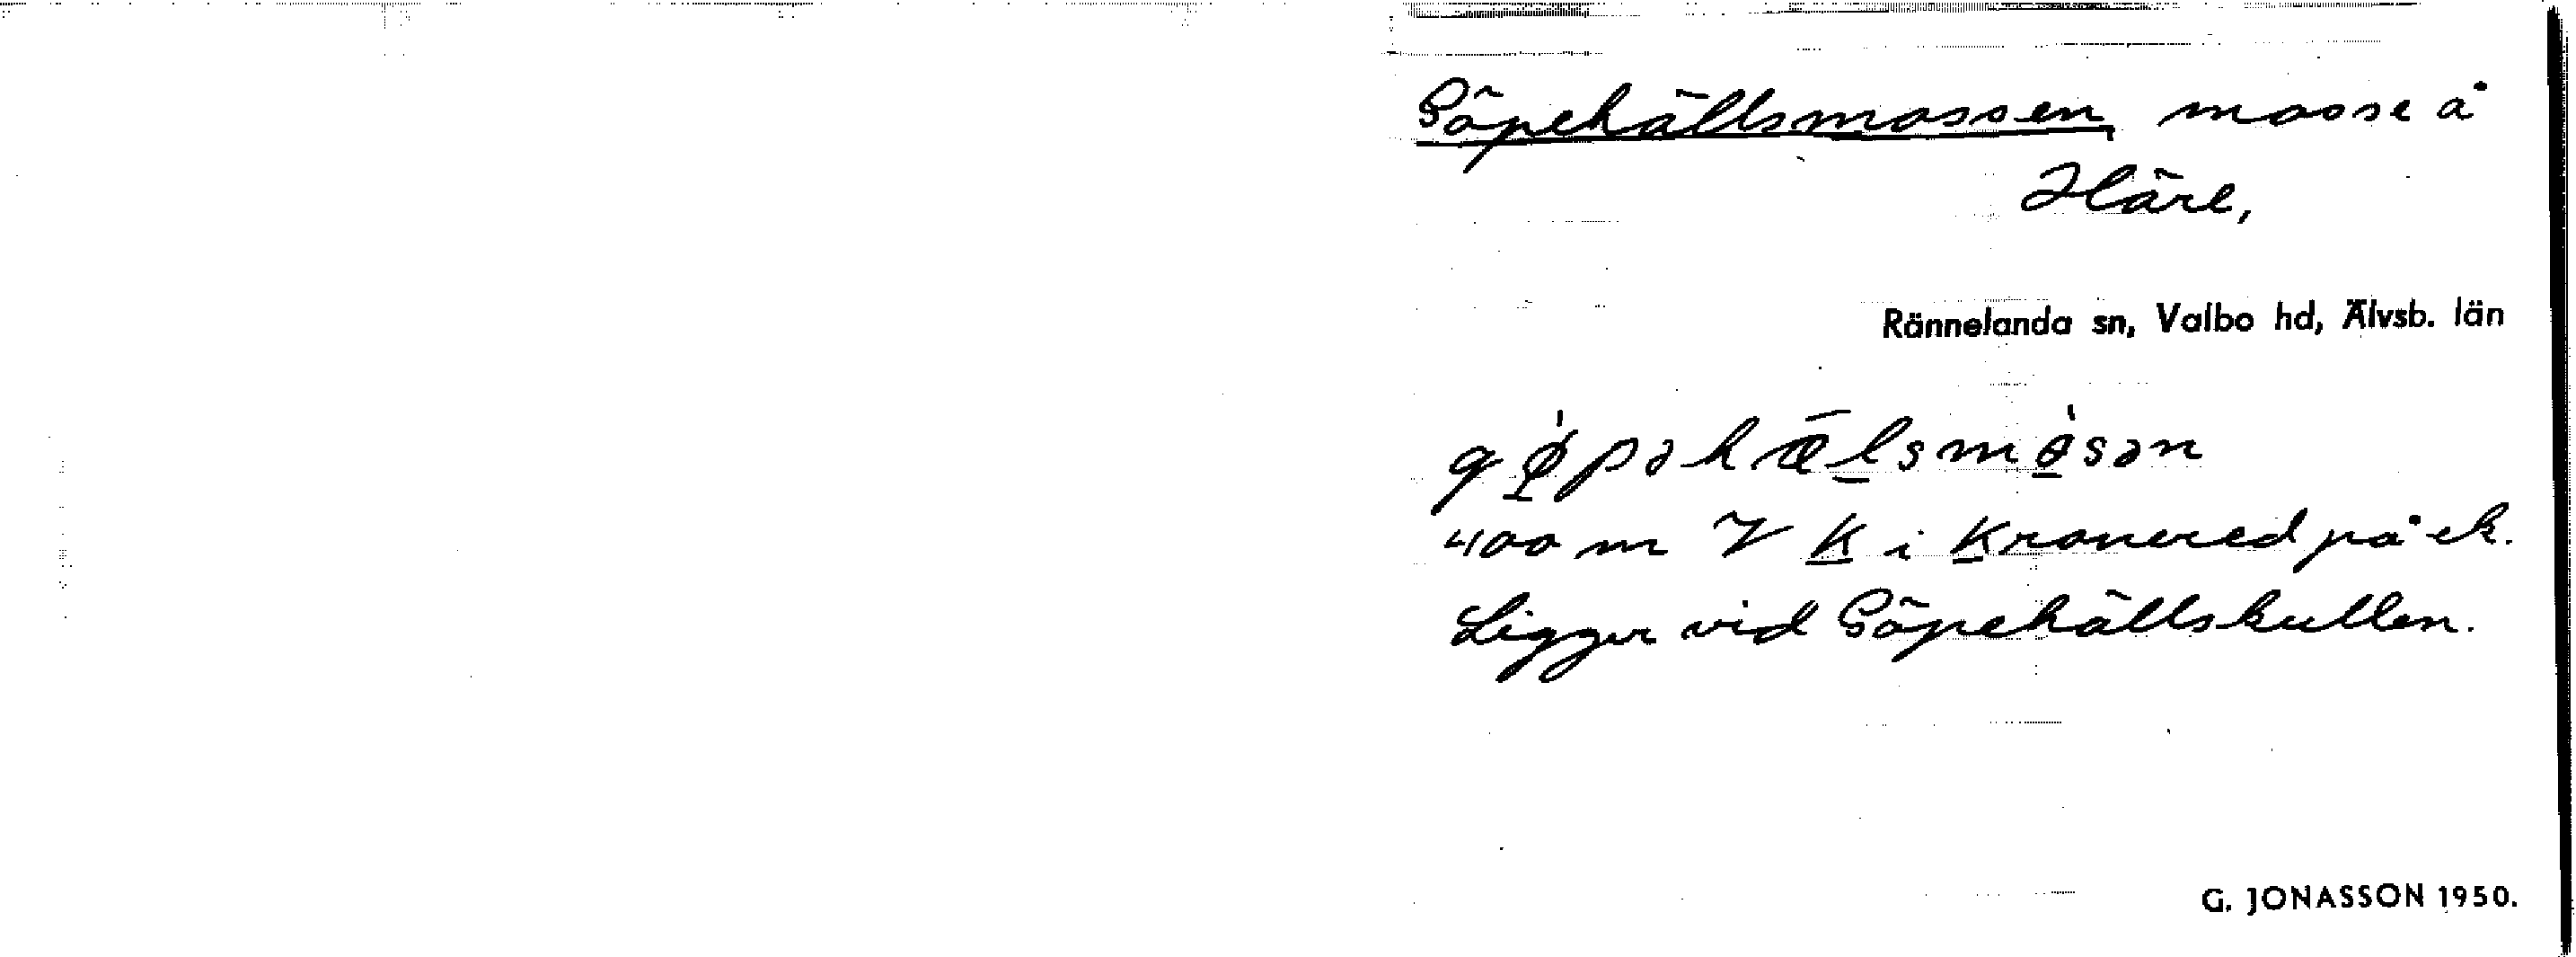 Göpehällsmossen, mosse å
Häre,
Rännelanda sn, Valbo hd, Älvsb. län
gø̀pəhælsmòsən
400 m V K i Kronered på ek.
Ligger vid Göpehällskullen.
G. JONASSON 1950.